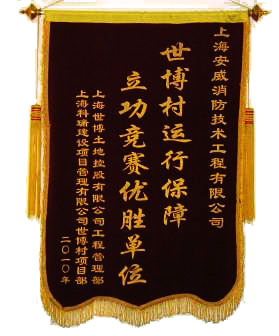 上海安威消防技术工程有限公司
世博村运行保障
立功竞赛优胜单位
上海世博土地控股有限公司工程管理部
上海科瑞建设项目管理有限公司世博村项目部
二〇一〇年